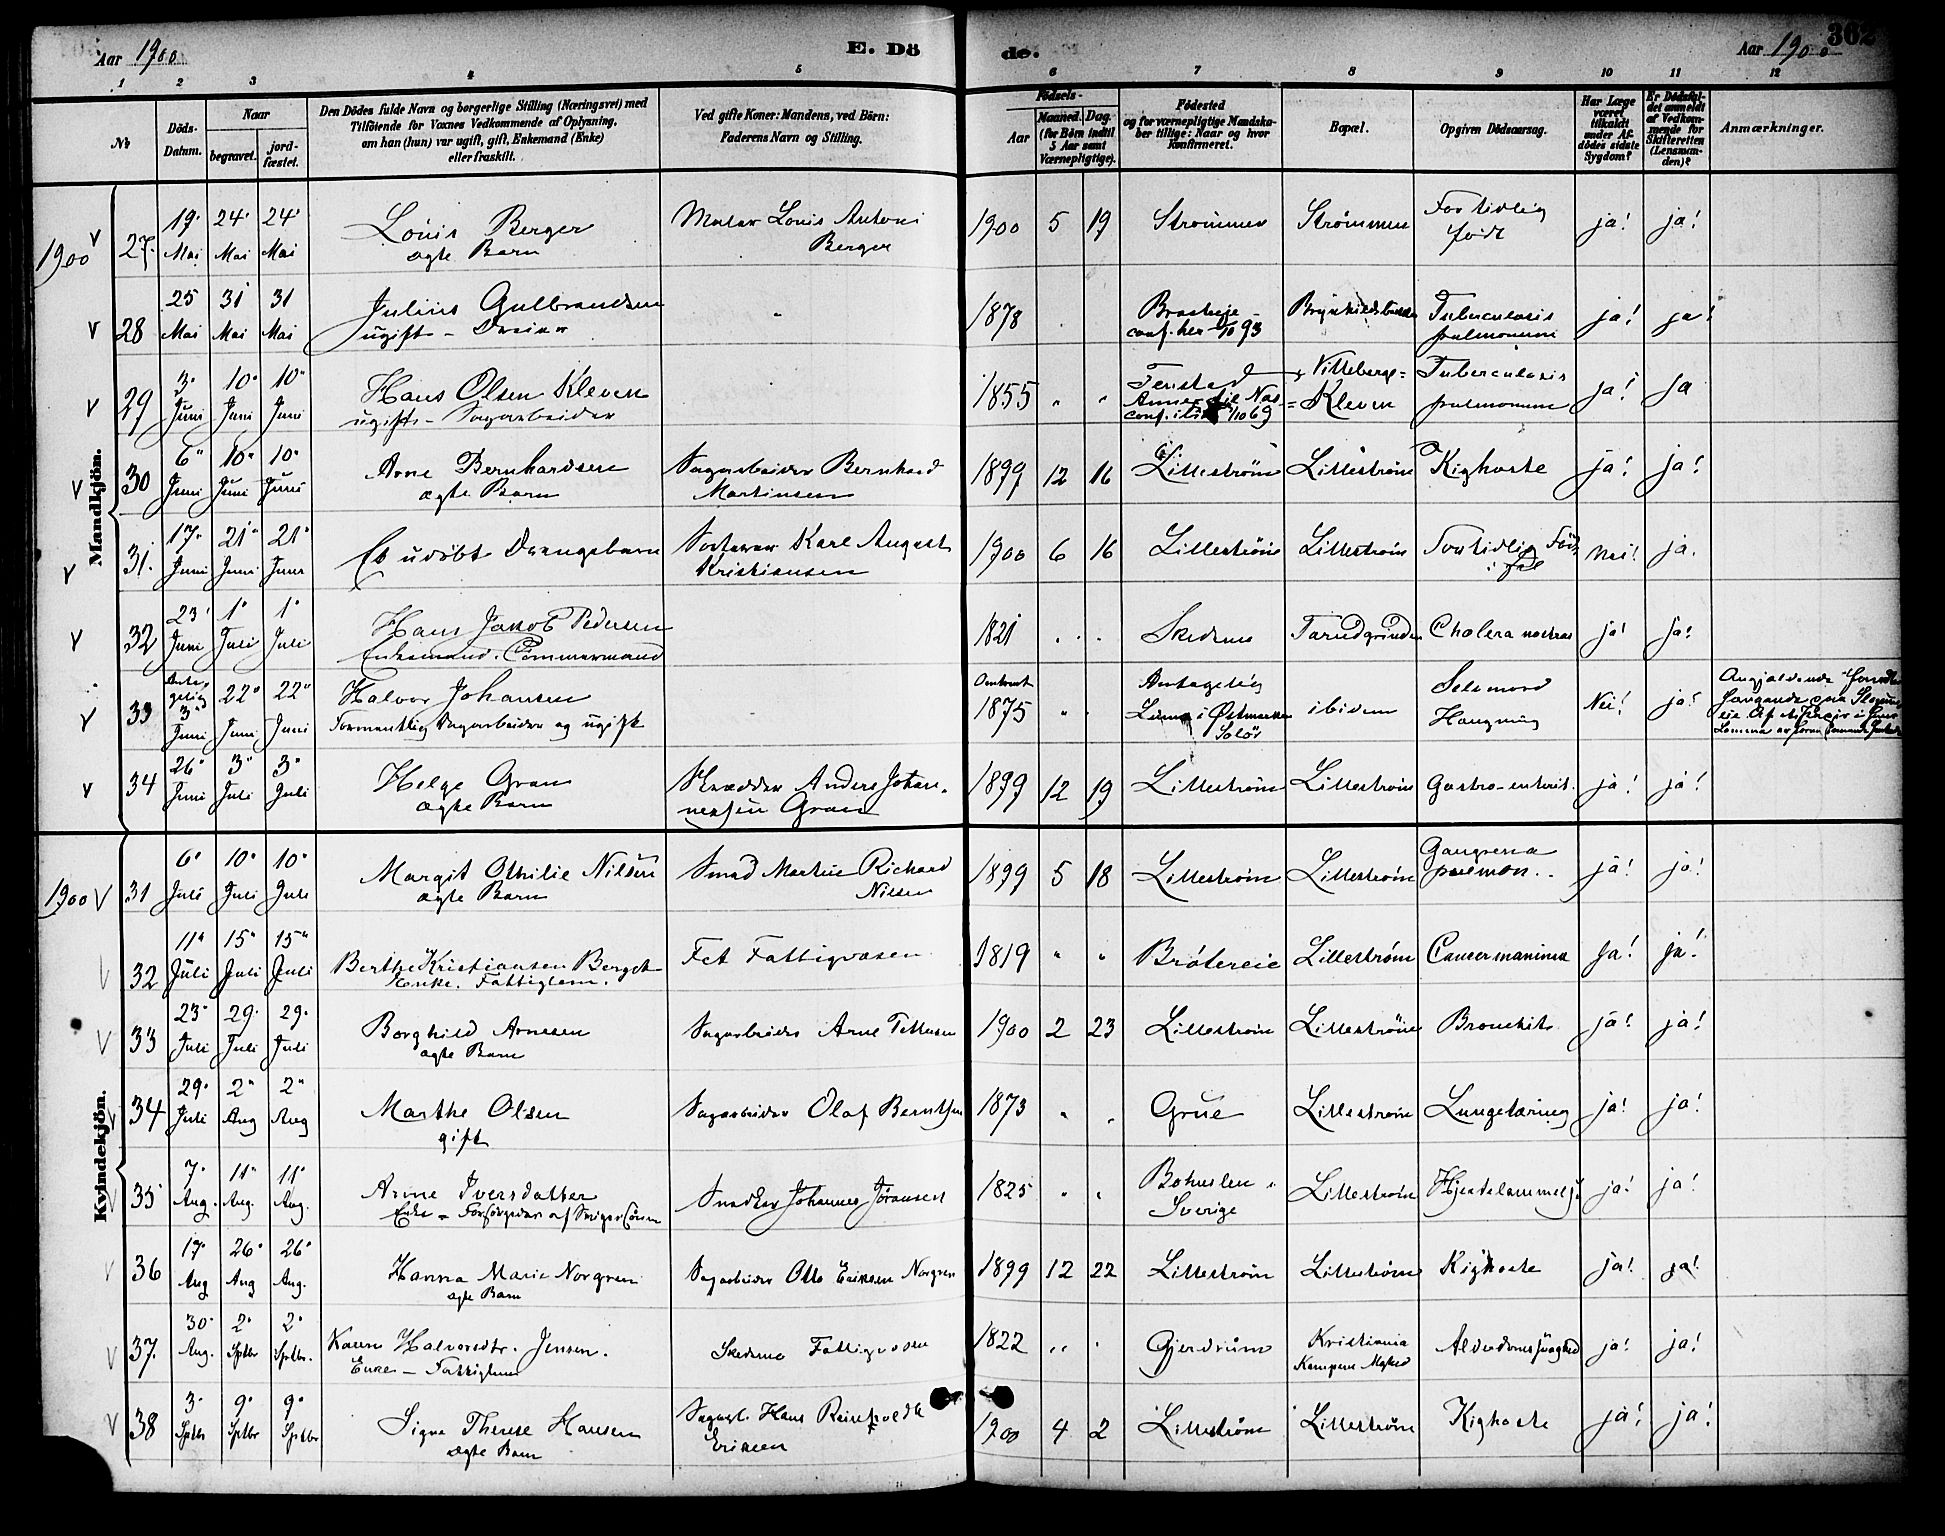 Aar 1900
E. Dö
de.
Aar 1900
302
1 2 3 4 5 6 7 8 9 10 11 12
No
Döds-
Datum.
Naar
begravet.
jord-
fæstet.
Den Dödes fulde Navn og borgerlige Stilling (Næringsvei) med
Tilföiende for Voxnes Vedkommende af Oplysning,
om han (hun) var ugift, gift, Enkemand (Enke)
eller fraskilt.
Ved gifte Koner: Mandens, ved Börn:
Faderens Navn og Stilling.
Födsels-
Aar
Maaned. Dag.
(for Börn indtil
5 Aar samt
Værnepligtige).
Födested
og for værnepligtige Mandska-
ber tillige: Naar og hvor
konfirmeret.
Bopæl.
Opgiven Dödsaarsag.
Har Læge
været
tilkaldt
under Af-
dödes sidste
Sygdom?
Er Dödsfal-
det anmeldt
af Vedkom-
mende for
Skifteretten
(Lensman-
den)?
Anmærkninger.
Mandkjön.
1900 27. 19. Mai 24. Mai 24. Mai Louis Berger Maler Louis Antoni 1900 5 19 Strømmen Strømmen For tidlig ja! ja!
ægte Barn Berger født
28 25 Mai 31 Mai 31 Mai Julius Gulbrandsen 1878 Bryn Tuberculosis ja! ja!
ugift - Dreier conf. her /10 93 pulmonum
29 3. Juni 10. Juni 10. Juni Hans Olsen Kleven 1855 Kleven Tuberculosis ja! ja
ugift - Sagarbeider /10 69 pulmonum
30 6. Juni 10. Juni 10. Juni Arne Bernhardsen Sagarbeider Bernhard 1899 12 16 Lillestrøm Lillestrøm Kighoste ja! ja!
ægte Barn Martinsen
31. 17. Juni 21. Juni 21. Juni Et udøbt Drengebarn Karl August 1900 6 16 Lillestrøm Lillestrøm For tidlig Nei! ja.
Kristiansen
32 23. Juni 1. Juli 1. Juli Hans Jakob Pedersen 1821 Skedsmo Cholera nostras ja! ja!
Enkemand.
33 Antagelig 3. Juni 22. Juni 22. Juni Halvor Johansen Omtrent 1875 Antagelig ibidem Selvmord Nei! ja!
Formentlig Sagarbeider og ugift i Østmarken Solør Hængning
34 26. Juni 3. Juli 3. Juli Helge Gran Skrædder Anders Johan- 1899 12 19 Lillestrøm Lillestrøm Gastro-enterit. ja! ja!
ægte Barn nessen Gran
Kvindekjön.
1900 31 6. Juli 10. Juli 10. Juli Margit Othilie Nilsen Smed Martin Richard 1899 5 18 Lillestrøm Lillestrøm Gangrena ja! ja!
ægte Barn Nilsen pulmon.
32 11. Juli 15. Juli 15. Juli Berthe Kristiansen Berget Fet Fattigvæsen 1819 Bråtereie Lillestrøm Cancer mamma ja! ja!
Enke. Fattiglem.
33 23. Juli 29. Juli 29. Juli Borghild Arnesen Sagarbeider Arne 1900 2 23 Lillestrøm Lillestrøm Bronchit. ja! ja!
ægte Barn
34 29. Juli 2. Aug 2. Aug Marthe Olsen Sagarbeider Olaf Berntsen 1873 Grue Lillestrøm Lungetæring ja! ja!
gift
35 7. Aug. 11. Aug. 11. Aug. Anne Iversdatter Snedker Johannes Jöransen 1825 Bohuslen i Lillestrøm Hjertelammelse ja! ja!
Enke - Forsørgedes af Svigersønnen Sverige
36 17. Aug 26. Aug 26. Aug. Hanna Marie Norgren Sagarbeider Otto Eriksen Norgren 1899 12 22 Lillestrøm Lillestrøm Kighoste ja! ja!
ægte Barn
37. 30. Aug. 2. Sptbr 2. Sptbr. Karen Halvorsdtr. Jensen. Skedsmo Fattigvæsen 1822 Gjerdrum Kristiania Alderdomssvaghed ja! ja!
Enke - Fattiglem Kampens
38 3. Sptbr 9. Sptbr 9. Sptbr Signe Therese Hansen Sagarb. Hans Reinholdt 1900 4 2 Lillestrøm Lillestrøm Kighoste ja! ja!
ægte Barn Eriksen